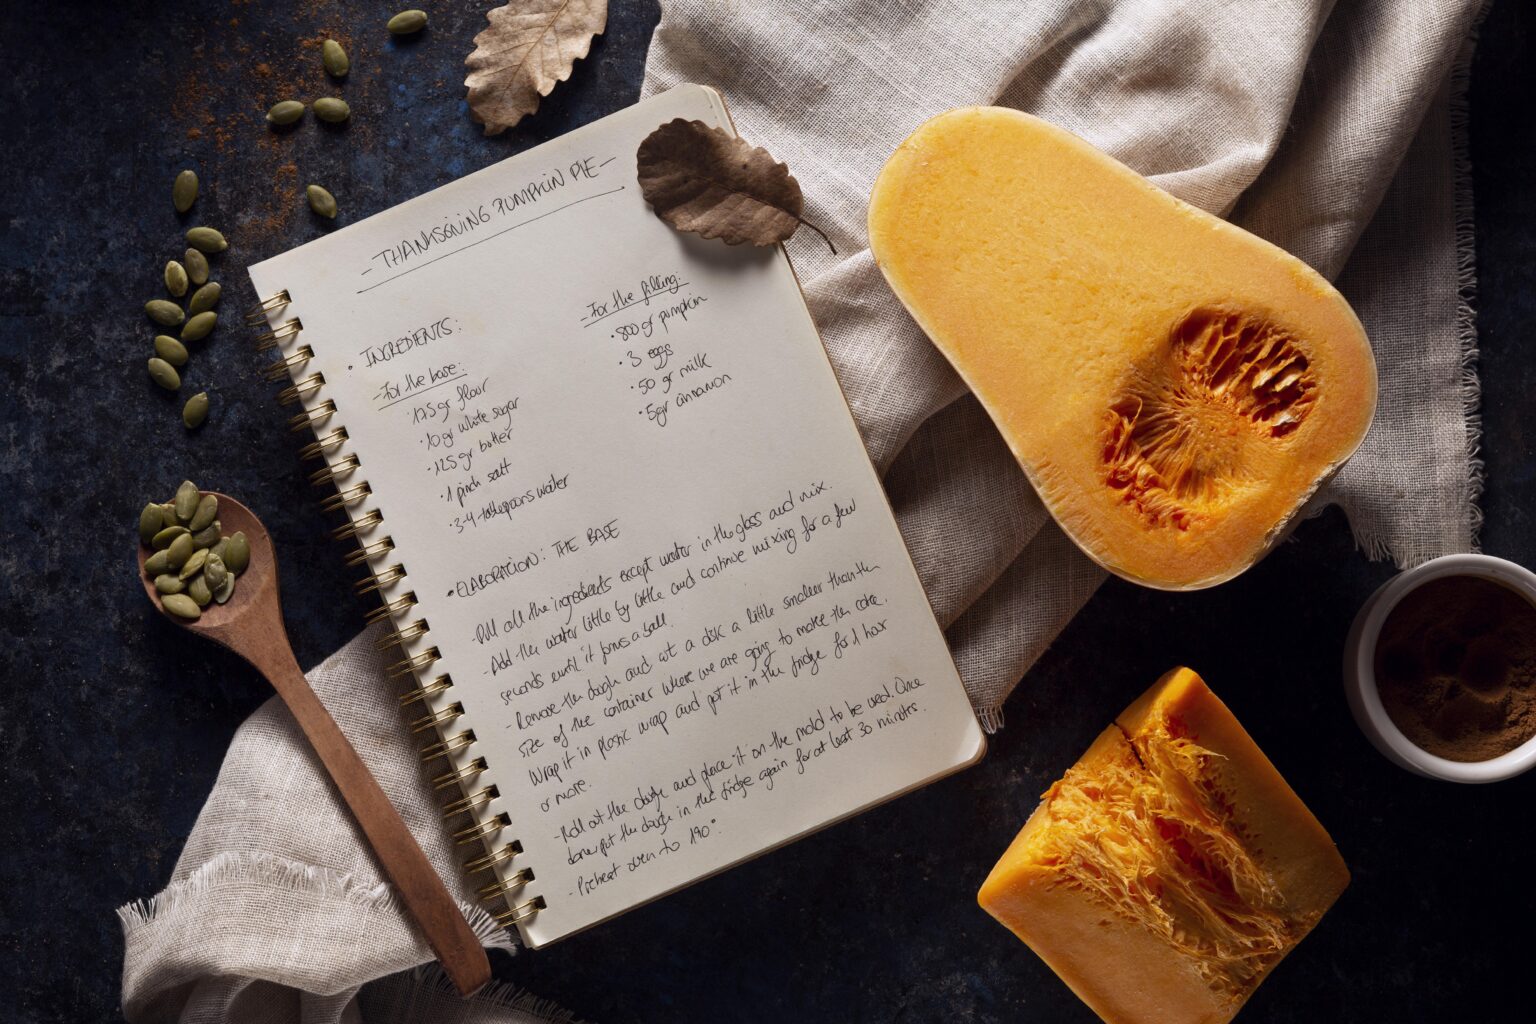 - THANKSGIVING PUMPKIN PIE -
• INGREDIENTS:
- For the base:
gr floor
• 10 gr white sugar
• 125 gr butter
• 1 pinch salt
• 3-4 tablespoons water
- For the filling:
• 800 gr pumpkin
• 3 eggs
• 50 gr milk
• 5gr cinnamon
• ELABORACION: THE BASE
- all the ingredients except water in the glass and mix.
- Add the water little by little and continue mixing for a few
seconds until it forms a ball.
- Remove the dough and cut a disk a little smaller than the
size of the container where we are going to make the cake.
Wrap it in plastic wrap and put it in the fridge for 1 hour
or more.
- Roll out the dough and place it on the mold to be used. Once
done, put the dough in the fridge again for at least 30 minutes.
- Preheat oven to 190°